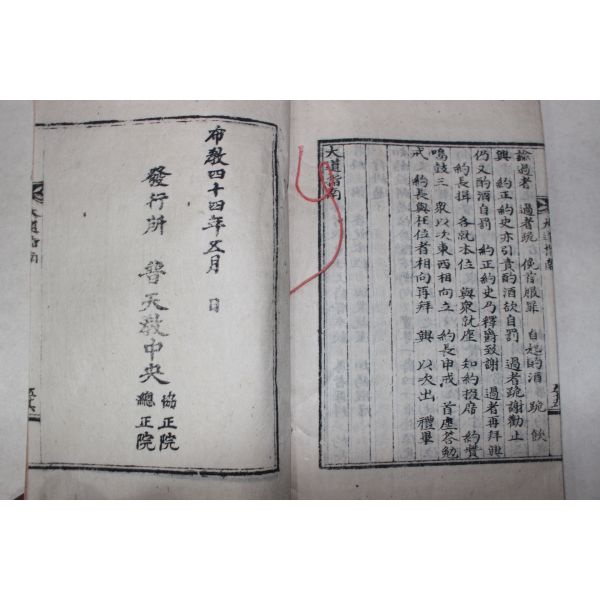 諭過者 過者跪 俛首服罪 自起酌酒 跪飮
興 約正約史亦引責酌酒欲自罰 過者跪謝勸止
仍又酌酒自罰 約正約史乃釋爵致謝 過者再拜興
約長揖 各就本位 與衆就座 知約掇席 約贊
鳴鼓三 衆以次東西相向立 約長申戒 首座答勉
戒 約長與在位者相向再拜 興 以次出 禮畢
大道指南
大道指南
五十五
布敎四十四年五月 日
發行所 普天敎中央
協正院
總正院
大道指南
五十六